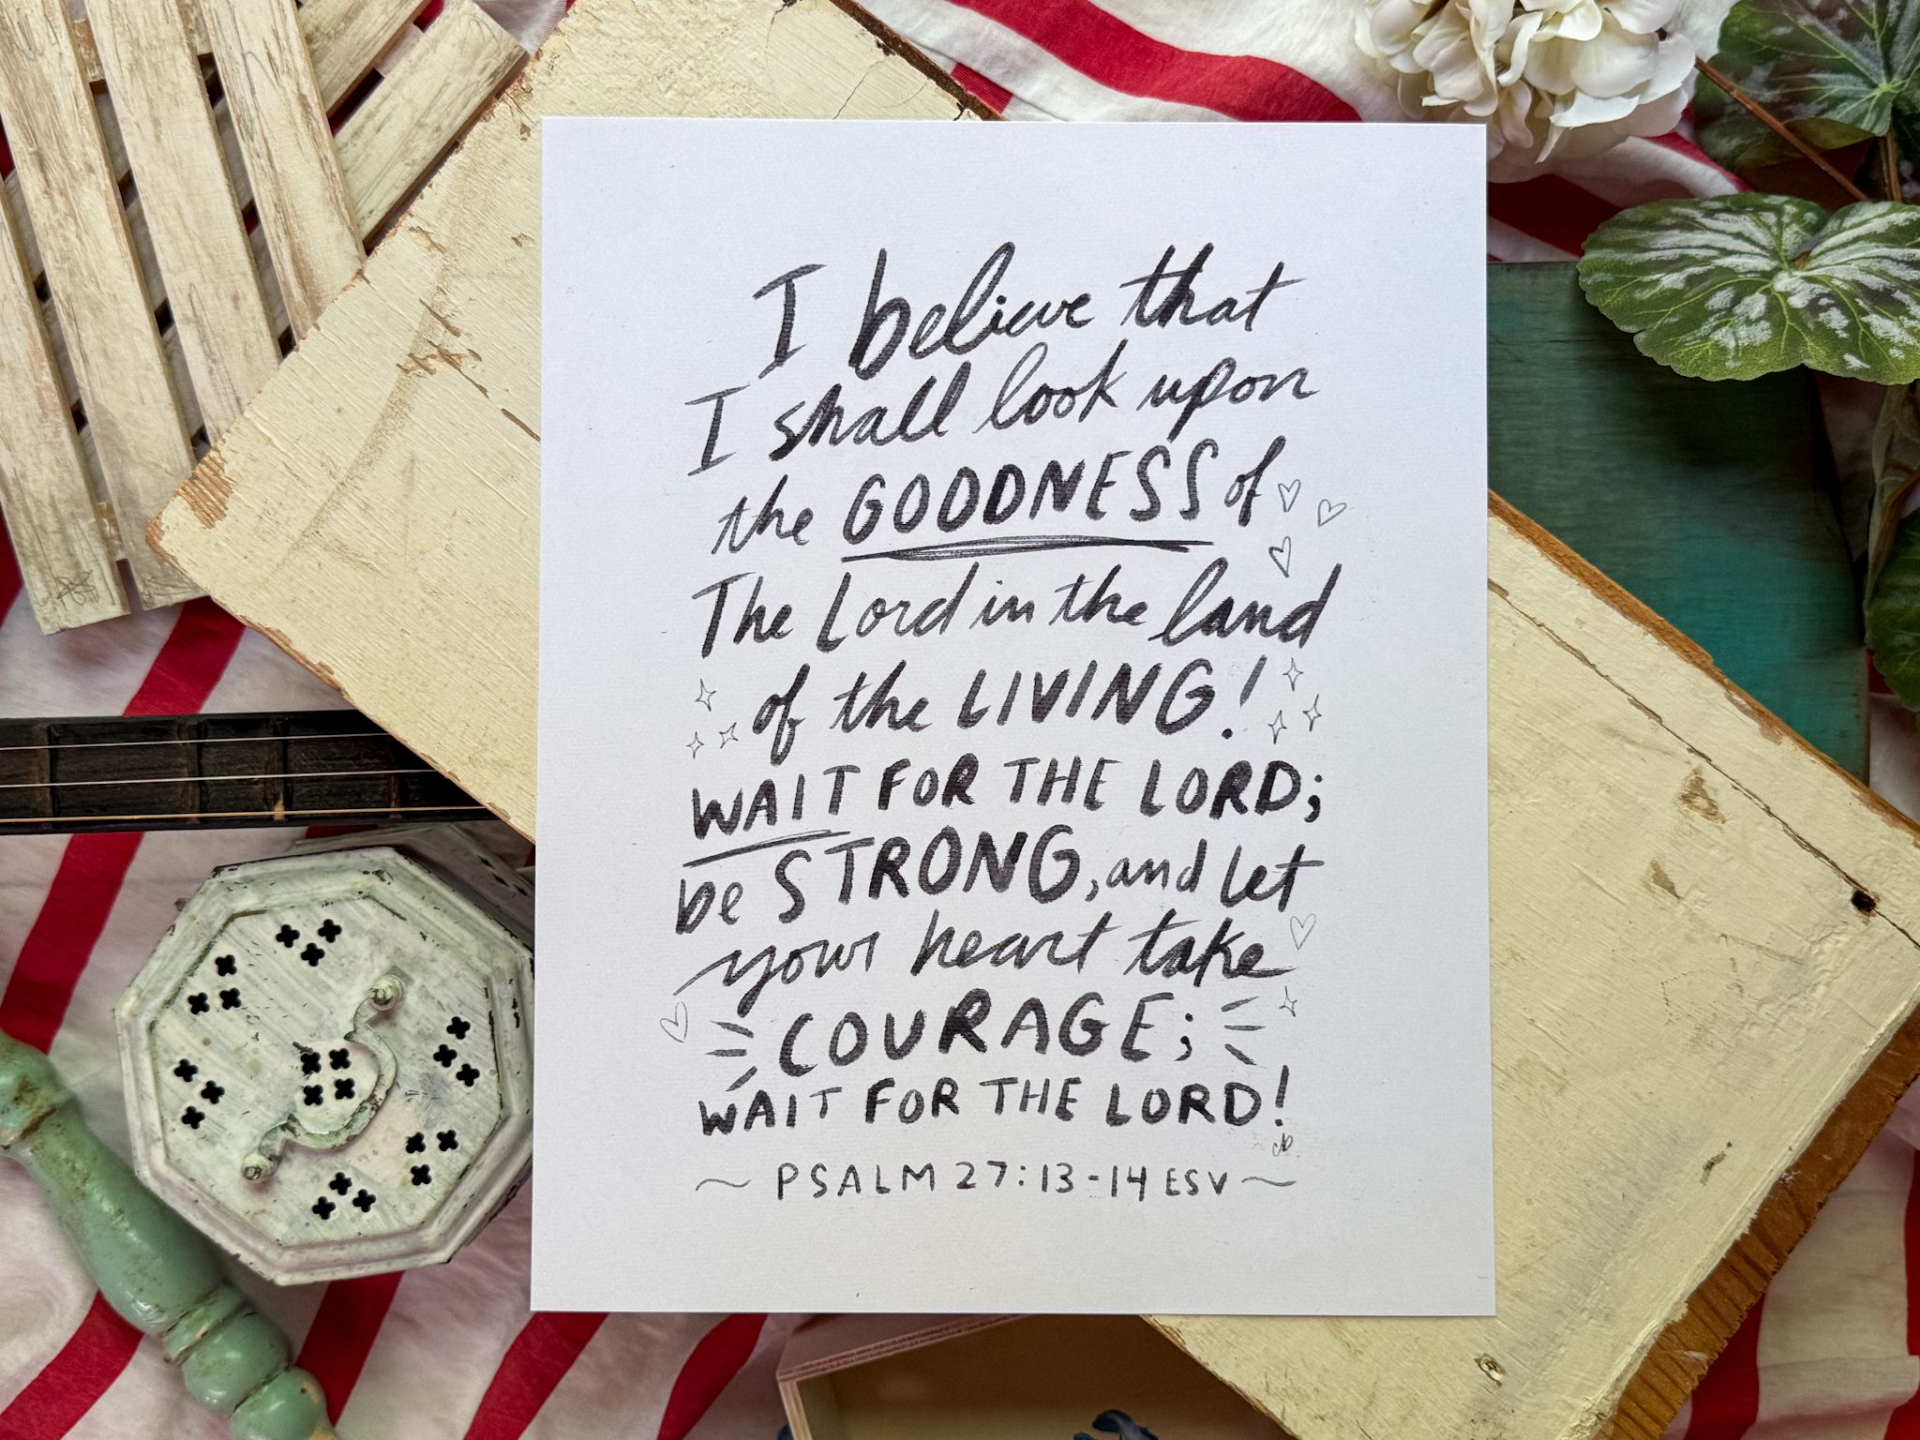 I believe that
I shall look upon
the GOODNESS of
The Lord in the land
of the LIVING!
WAIT FOR THE LORD;
be STRONG, and let
your heart take
COURAGE;
WAIT FOR THE LORD!
~ PSALM 27:13-14 ESV ~